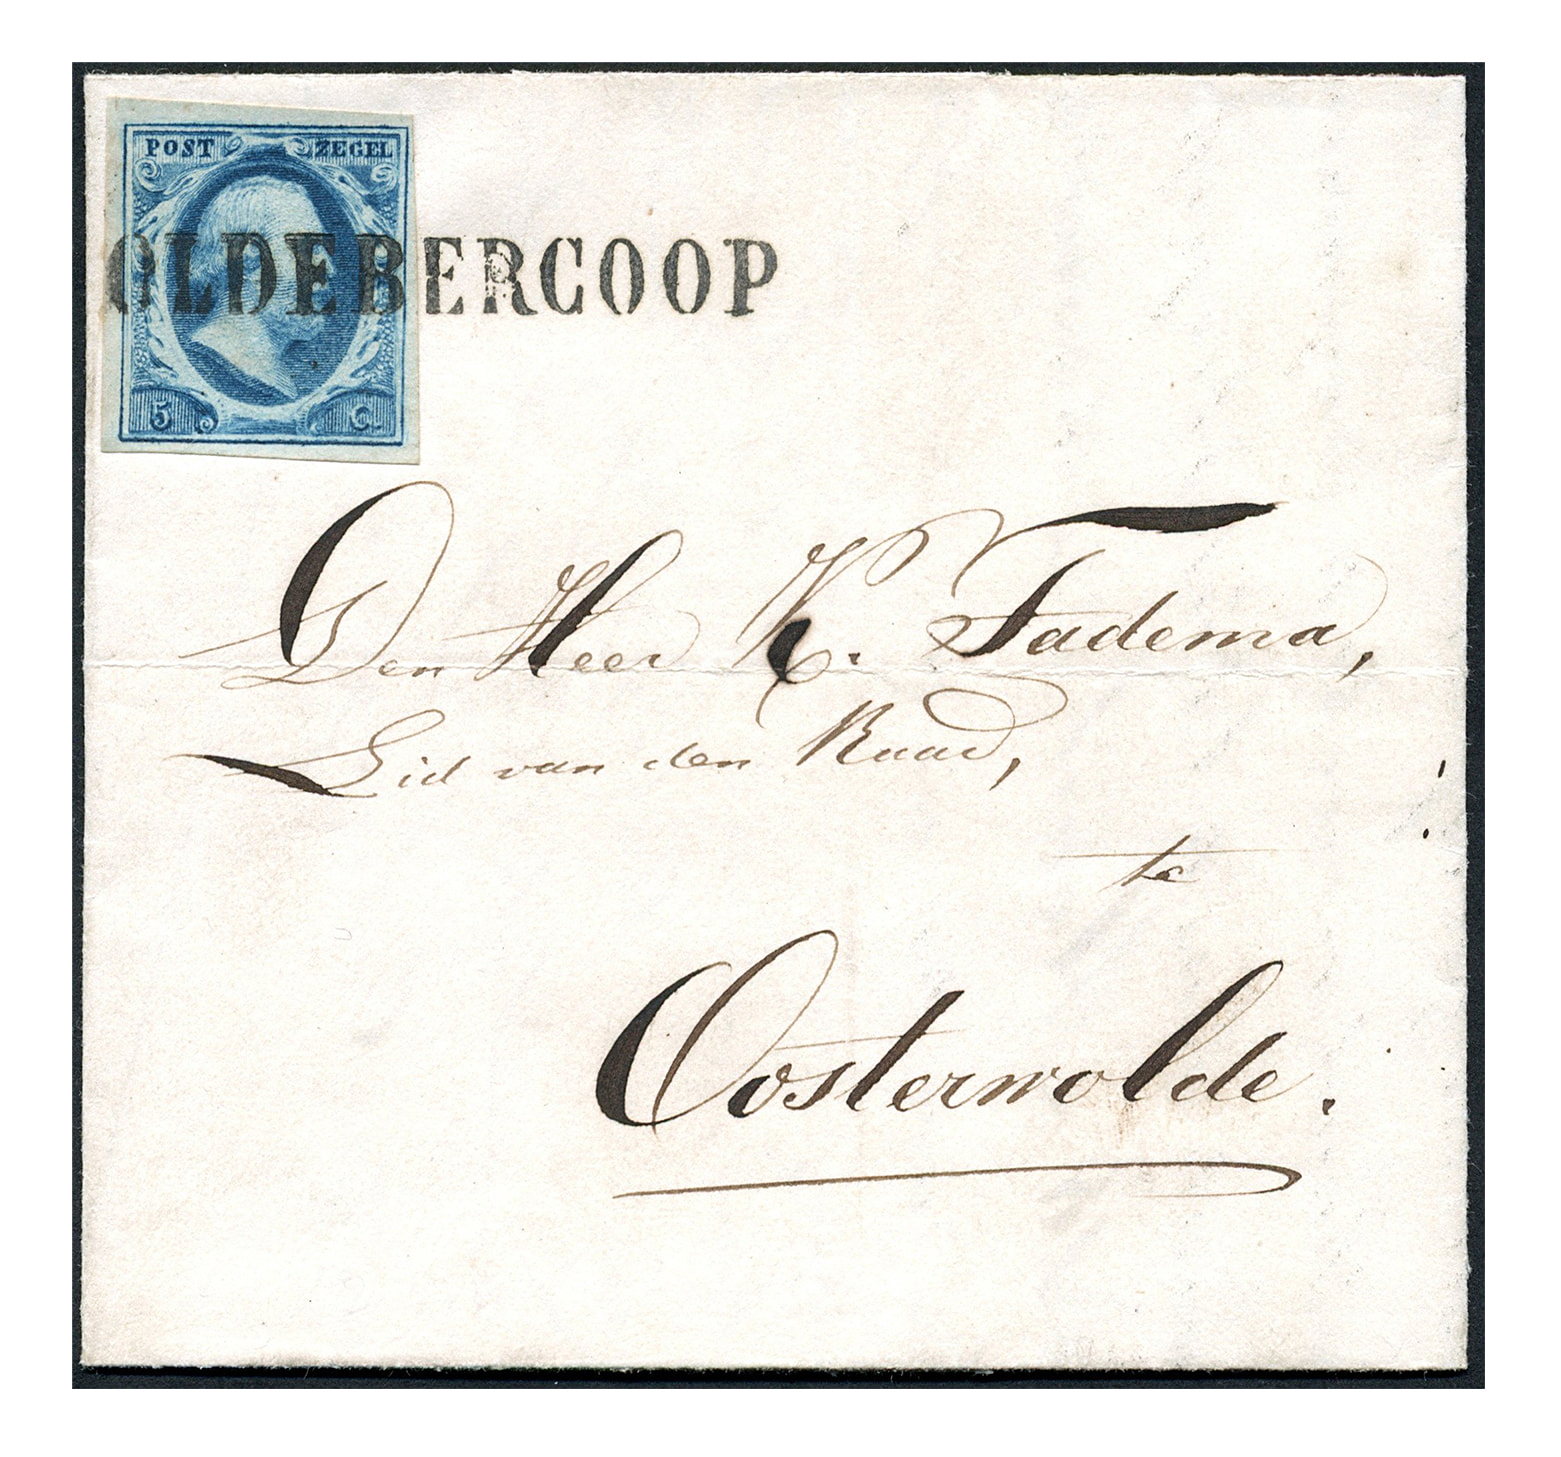 POST ZEGEL
OLDEBERCOOP
5 C.
Den Heer K. Tadema,
Lid van den Raad,
te
Oosterwolde.